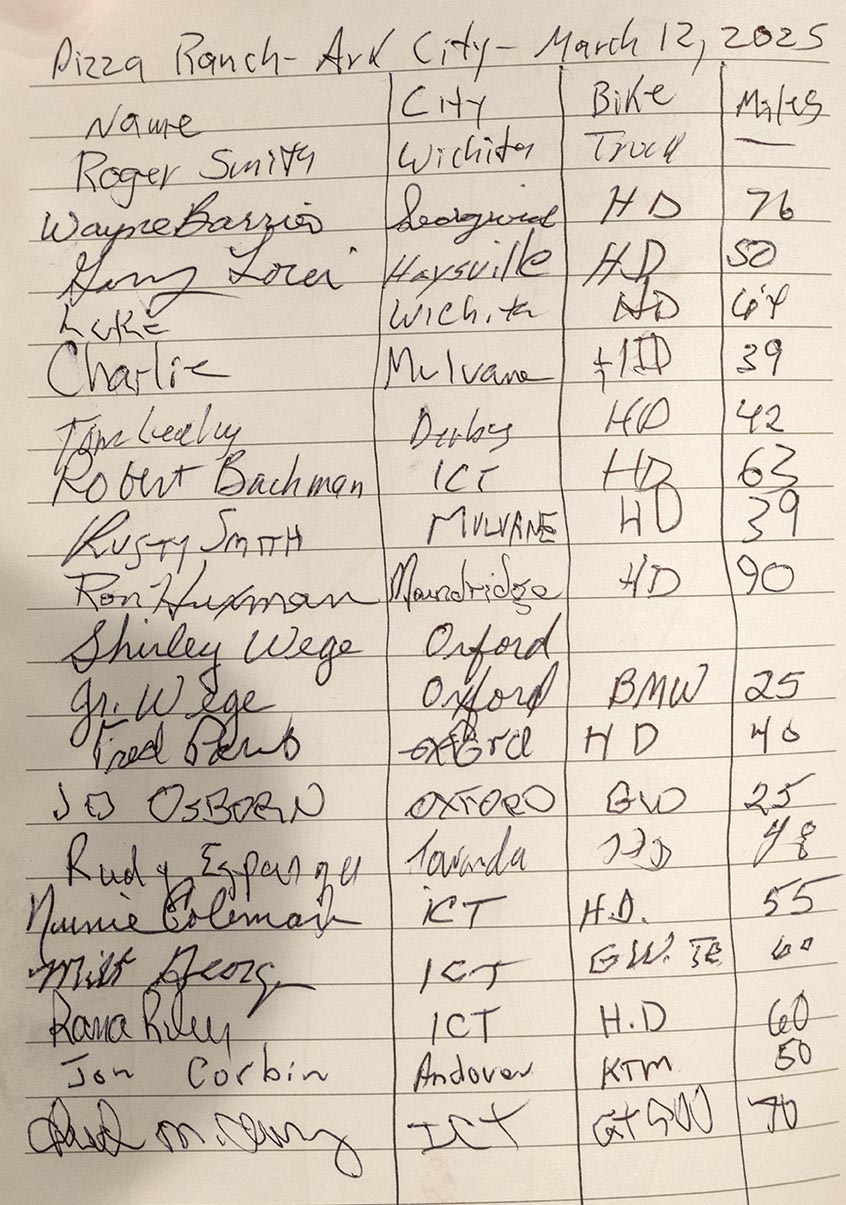 Pizza Ranch - Ark City - March 12, 2025
Name City Bike Miles
Roger Smith Wichita Truck —
Wayne Barrios HD 76
Haysville HD 50
Luke Wichita HD 64
Charlie Mulvane HD 39
Tom Leahy Derby HD 42
Robert Bachman ICT HD 63
Rusty Smith MULVANE HD 39
Ron Huxman Moundridge HD 90
Shirley Wege Oxford
Jr. Wege Oxford BMW 25
Fred HD 40
JD OSBORN OXFORD GW 25
Rudy Esparza Towanda HD 48
Coleman ICT H.D. 55
Milt George ICT GW. 60
Rana Riley ICT H.D 60
Jon Corbin Andover KTM 50
ICT 70